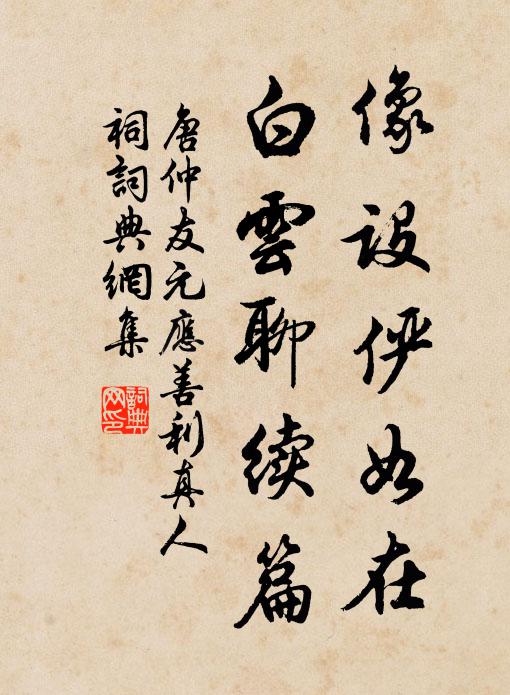 像设俨如在
白雲聊续篇
唐仲友元應善利真人
祠詞典網集
詞典網印